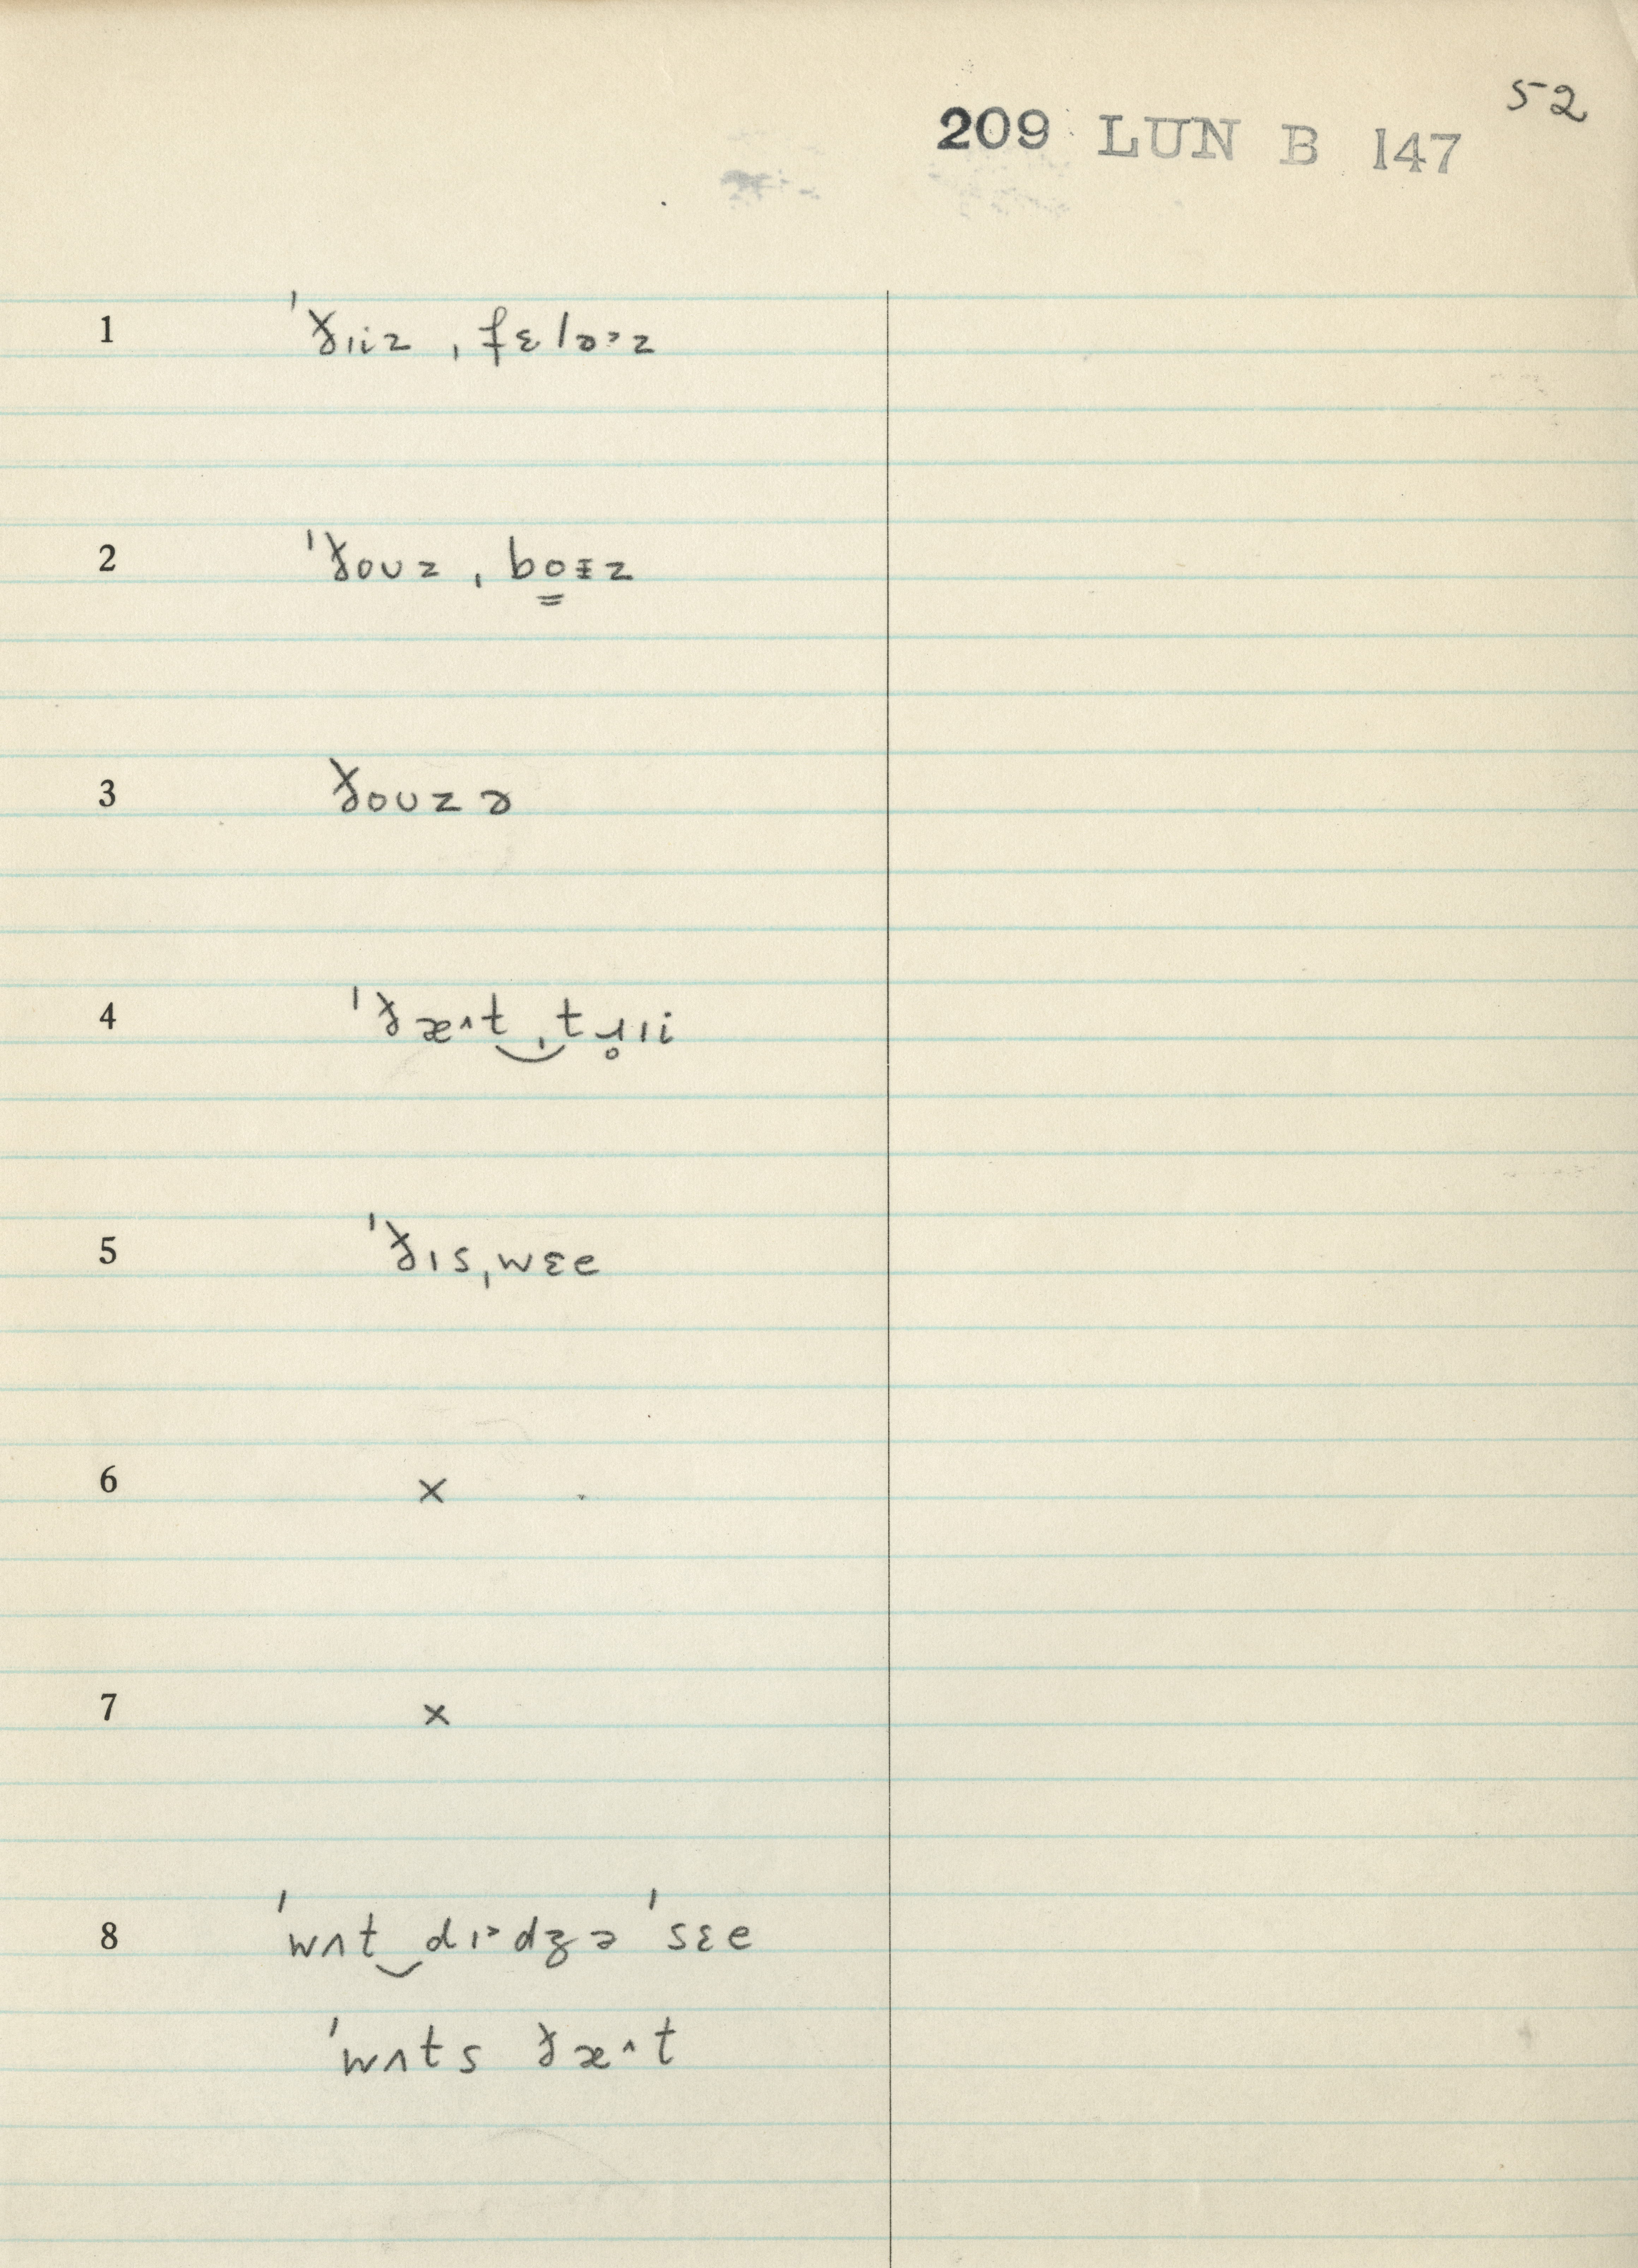 52
209 LUN B 147
1 ˈðɪiz ˌfɛləɚz
2 ˈðoʊz ˌbo̳ɨz
3 ðoʊzə
4 ˈðæ˄t‿ˌtɹ̥ɪi
5 ˈðɪsˌwɛe
6 ×
7 ×
8 ˈwʌt‿dɪ˃dʒə ˈsɛe
ˈwʌts ðæ˄t